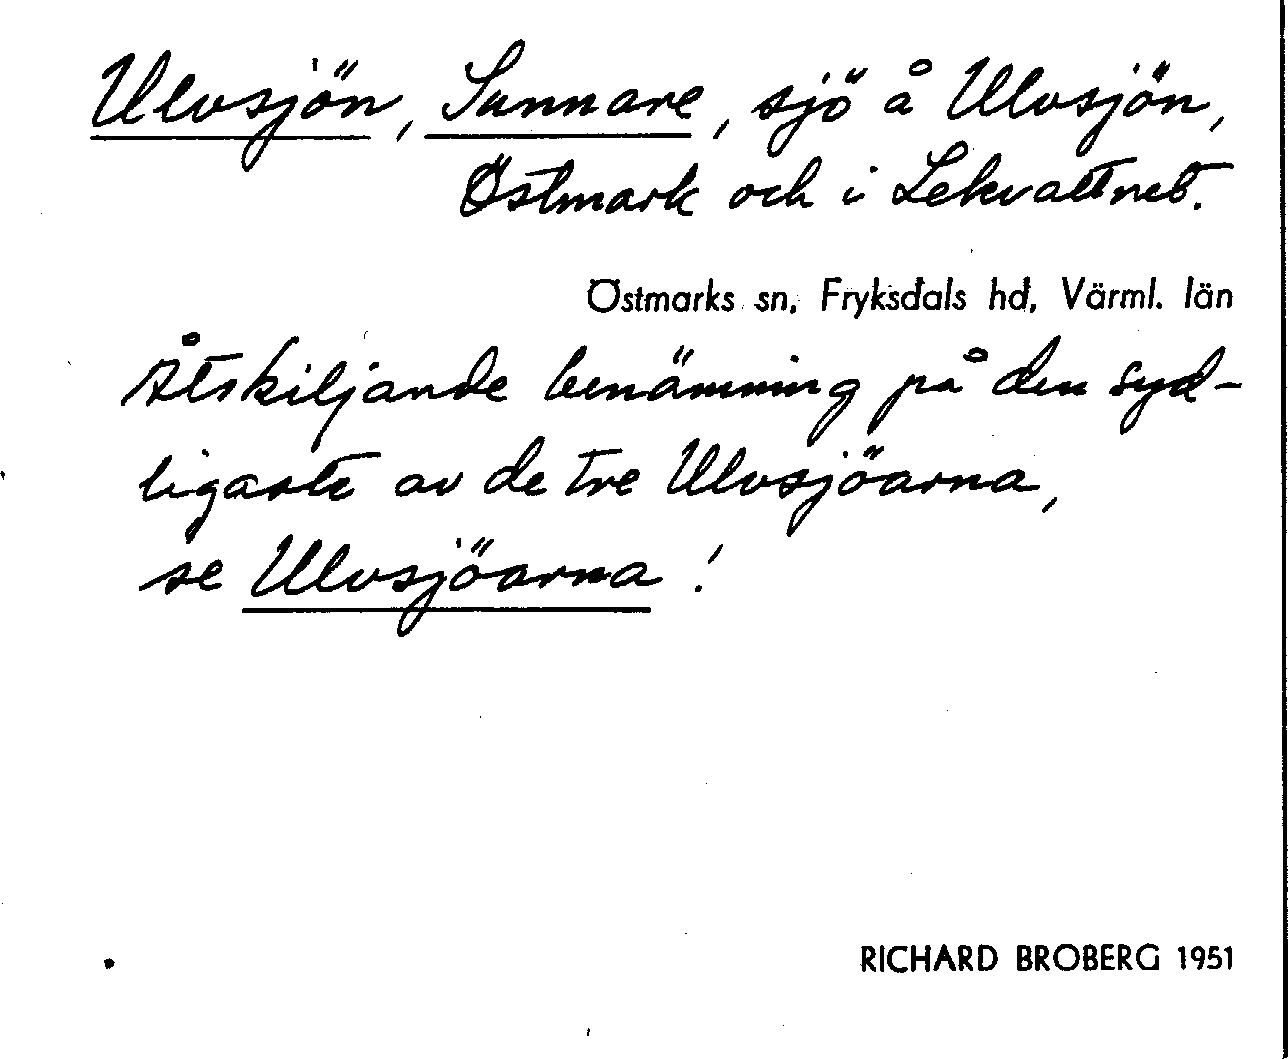 Ulvsjön, Sunnare, sjö å Ulvsjön,
Östmark och i Lekvattnet.
Östmarks sn, Fryksdals hd, Värml. län
Åtskiljande benämning på den syd-
ligaste av de tre Ulvsjöarna,
se Ulvsjöarna!
RICHARD BROBERG 1951